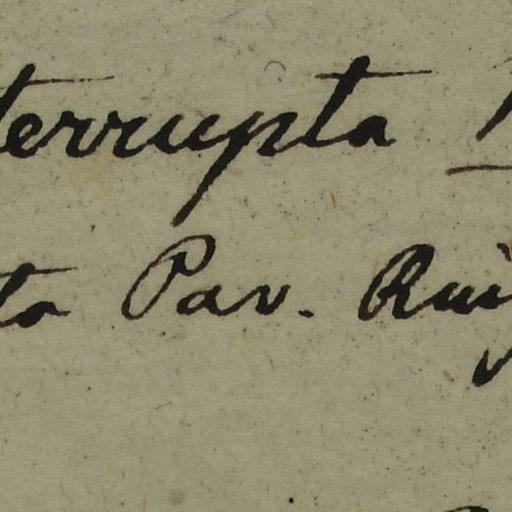 terrupta
ta Pav. Rui